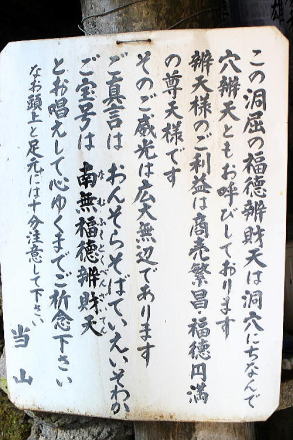 この洞屈の福徳辨財天は洞穴にちなんで
穴辨天ともお呼びしております
辨天様のご利益は商売繁昌・福徳円満
の尊天様です
そのご威光は広大無辺であります
ご真言は おんそらそばていえいそわか
ご宝号は 南無福徳辨財天
なむふくとくべんざいてん
とお唱えして心ゆくまでご祈念下さい
なお頭上と足元には十分注意して下さい
当山